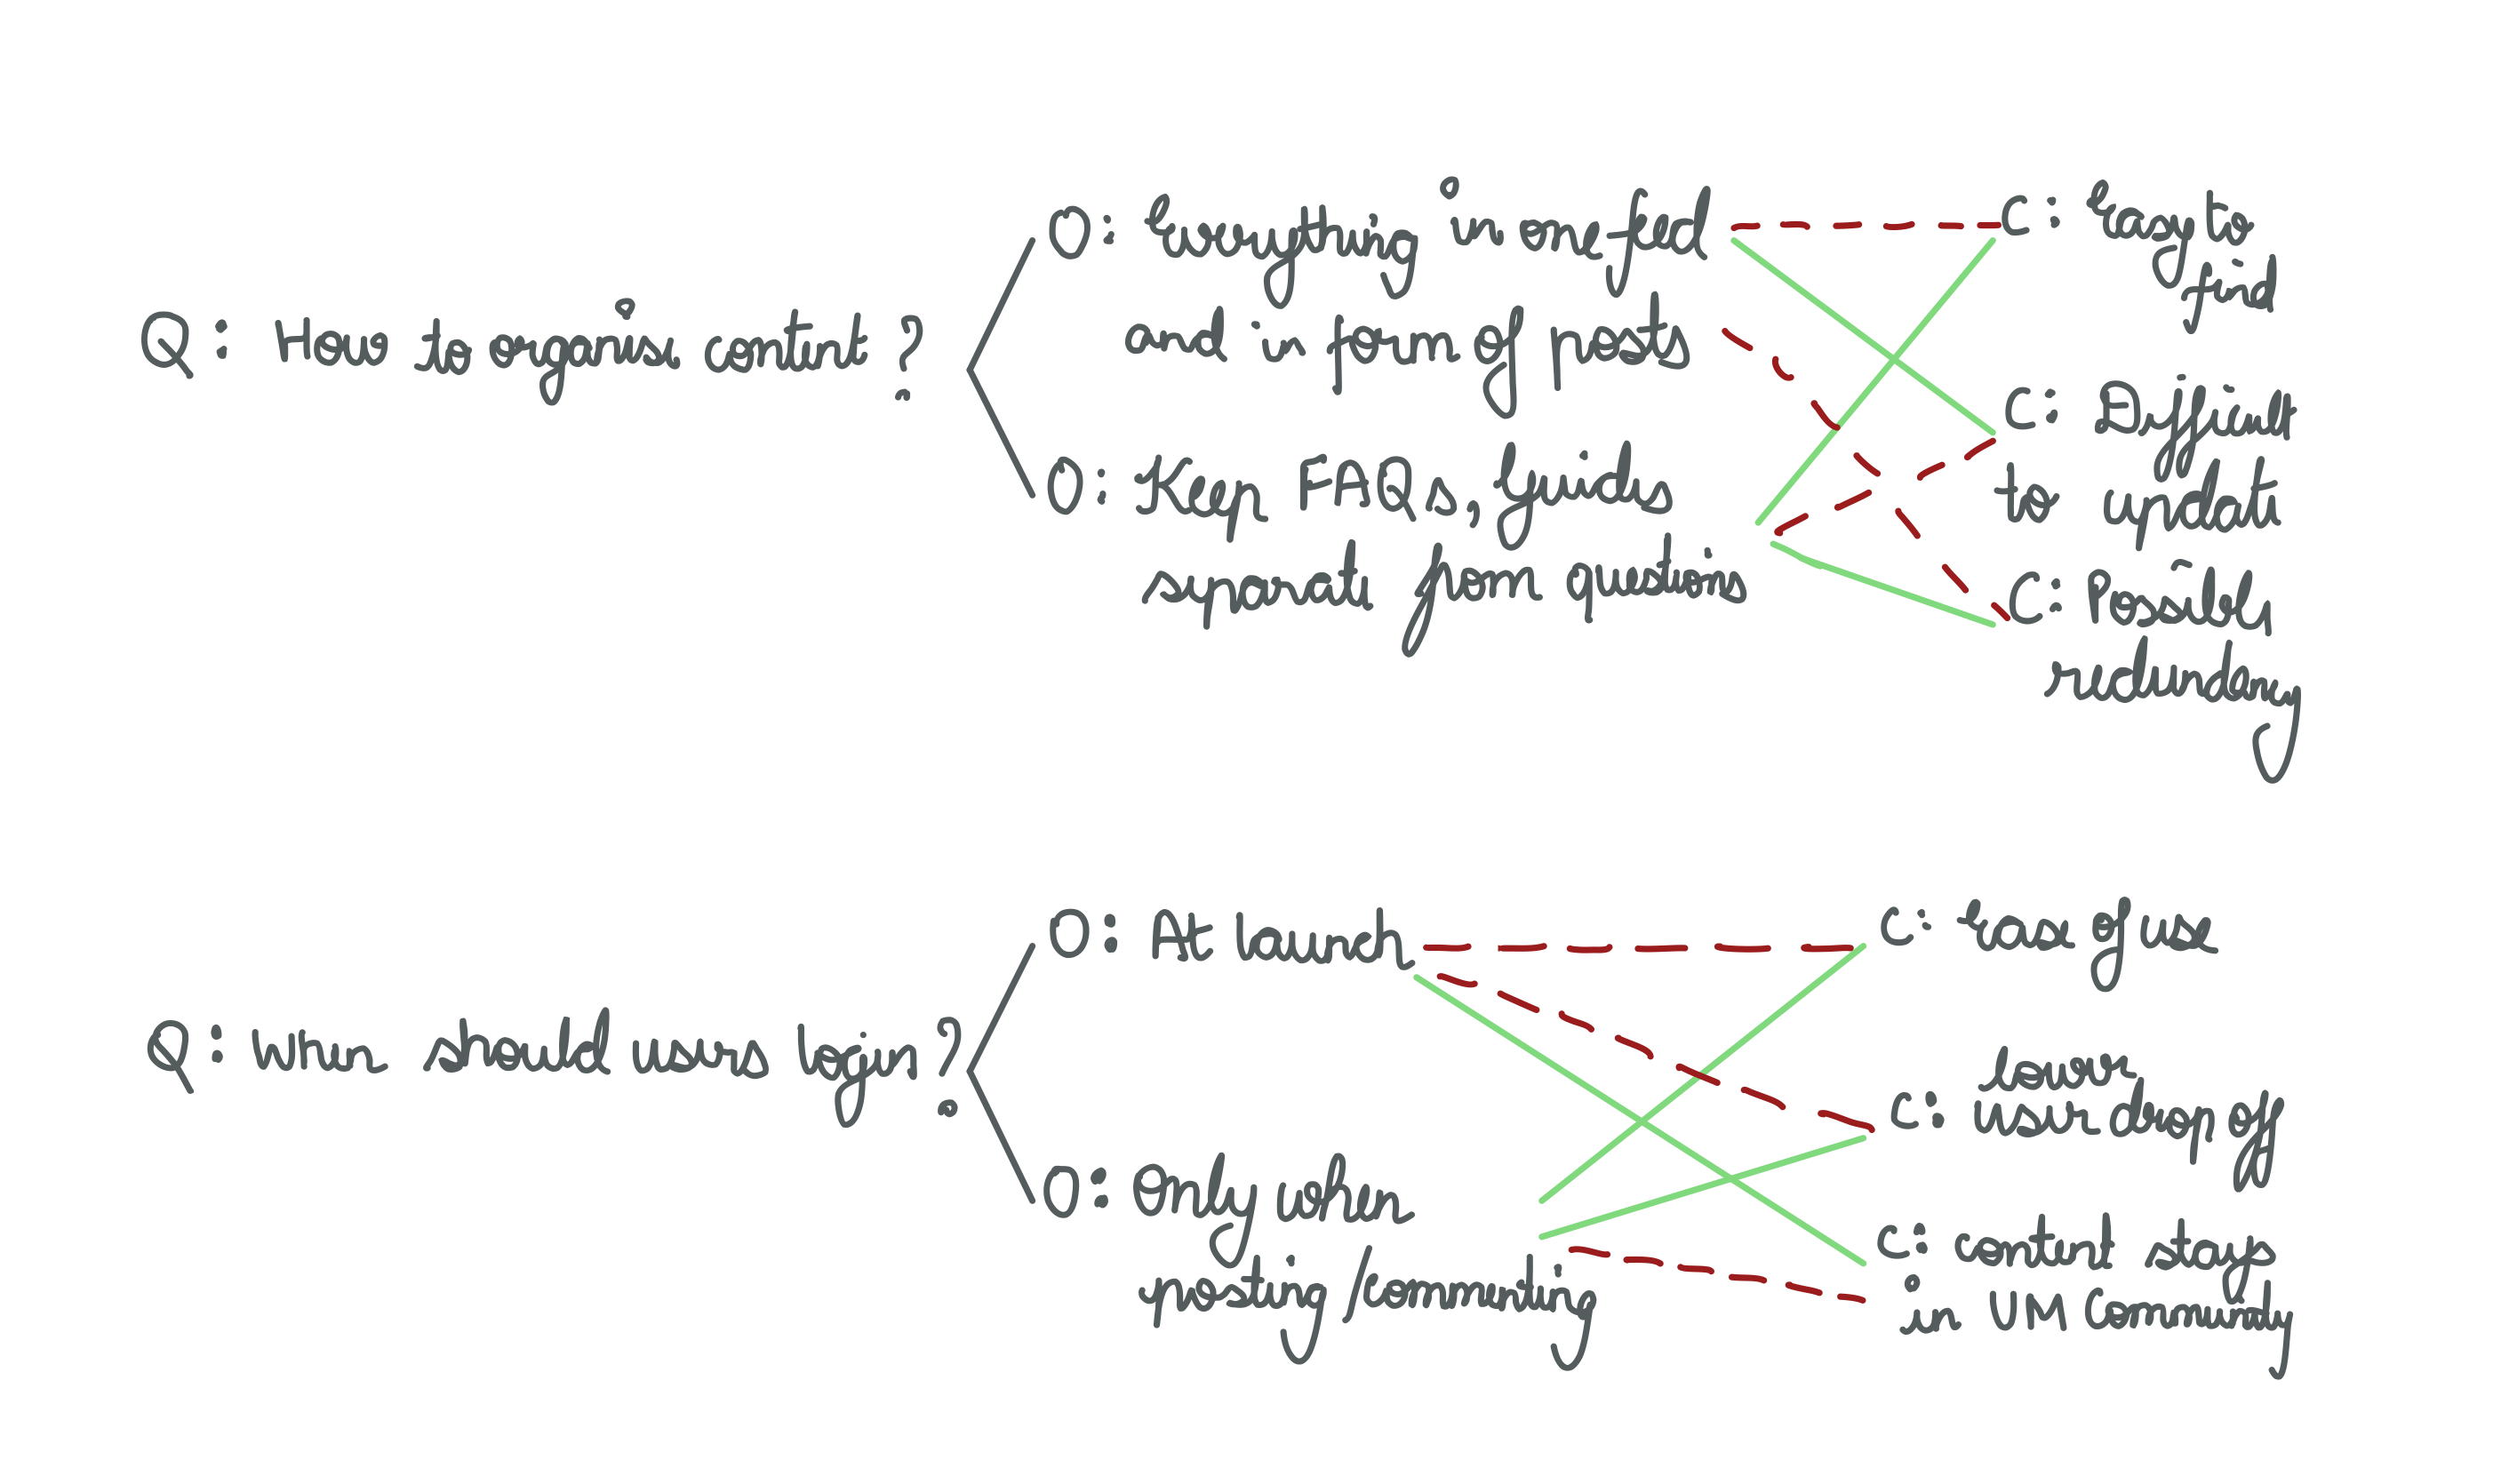 Q: How to organise content?
O: Everything in one feed
and in form of posts
O: Keep FAQs, Guides
separate from questions
C: Easy to
find
C: Difficult
to update
C: Possible
redundancy
Q: When should users login?
O: At launch
O: Only when
posting/commenting
C: Ease of use
C: Lower
user dropoff
C: Content stays
in UM Community